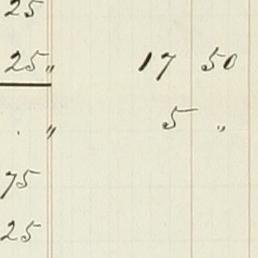 25
25 " 17 50
. " 5 "
75
25